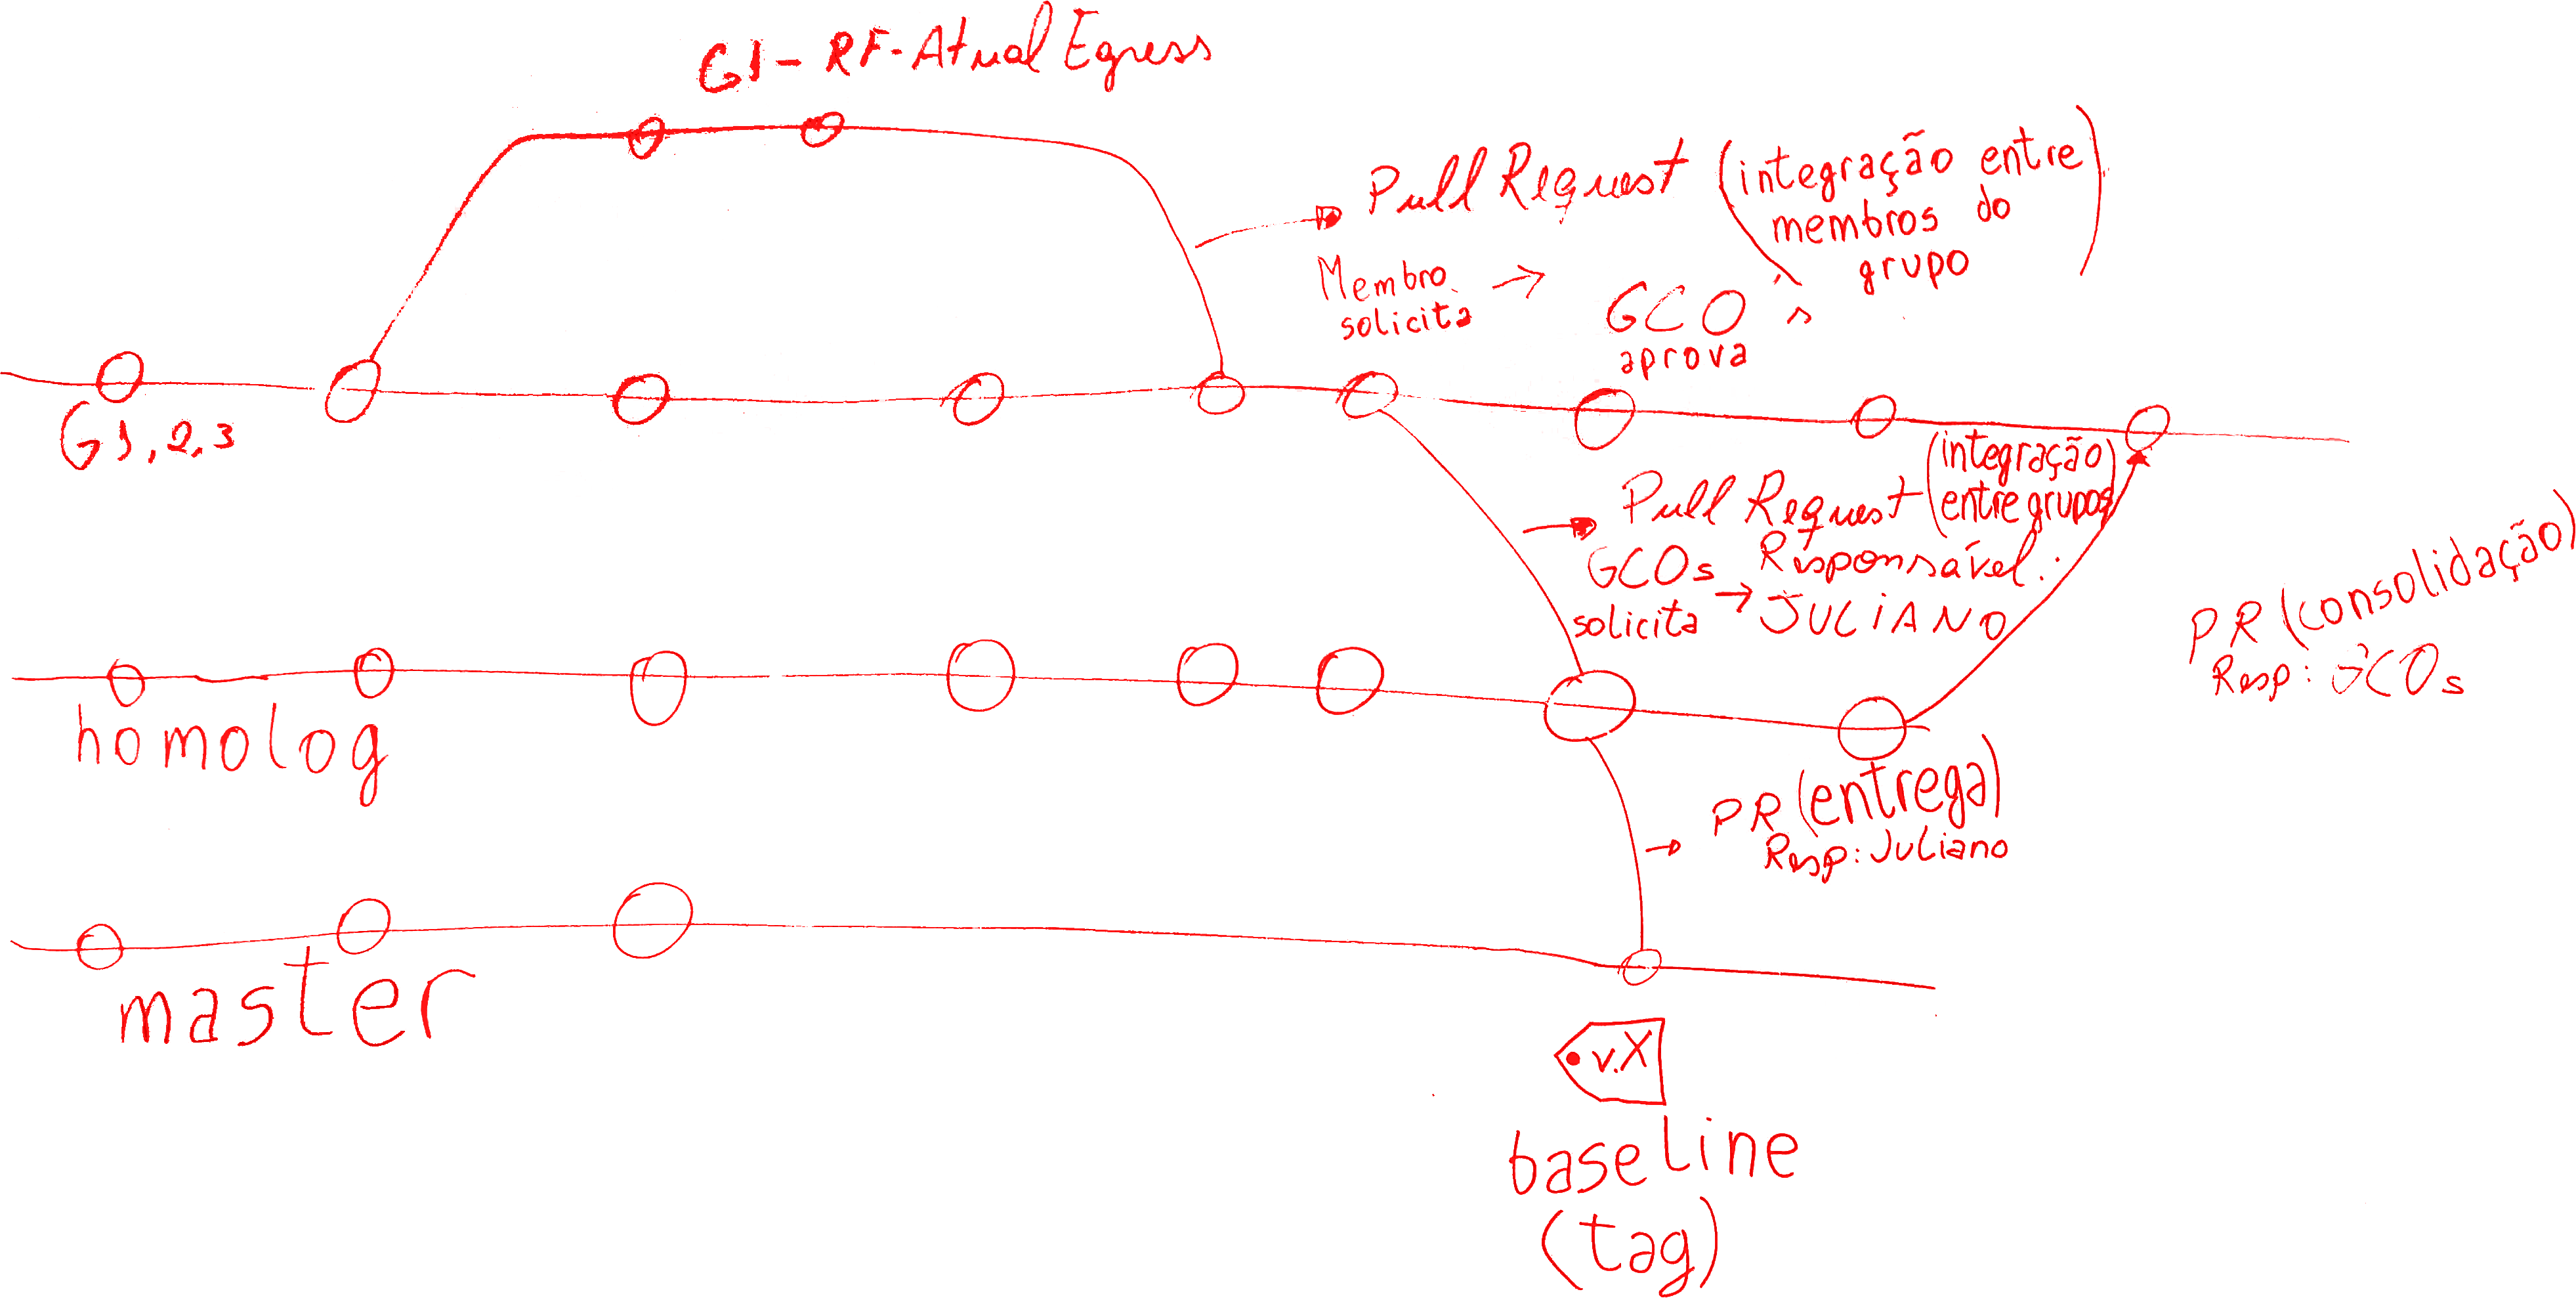 G1-RF-Atual Egress
Pull Request (integração entre
membros do
grupo)
Membro
solicita
→ GCO
aprova
G1,2,3
Pull Request (integração
entre grupos)
GCOs
solicita
→ Responsável:
JULIANO
PR (consolidação)
Resp: GCOs
homolog
PR (entrega)
Resp: Juliano
master
v.X
baseline
(tag)